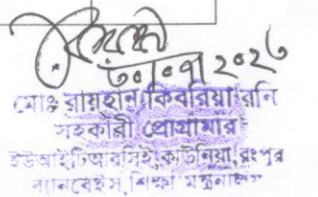 ৩০।০৭।২০২৩
মোঃ রায়হান কিবরিয়া রনি
সহকারী প্রোগ্রামার
ইউআইটিআরসিই, কাউনিয়া, রংপুর
ব্যানবেইস, শিক্ষা মন্ত্রনালয়